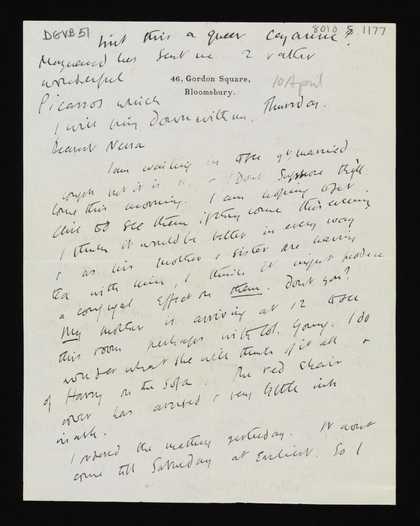 DGVB51
8010 5 1177
Isn't this a queer
Maynard has sent me 2 rather
wonderful
46, Gordon Square,
Bloomsbury.
10 April
Picassos which
I will bring down with me. Thursday.
Dearest Nessa
I am waiting to see ye married
couple but it is Don't suppose they'll
come this morning. I am hoping
to see them if they come this evening
I think it would be better in every way
& as his mother & sister are having
tea with him, I think it might produce
a conjugal effect on them. Don't you?
My mother is arriving at 12 to see
this room perhaps with Col. Young. I do
wonder what she will think of it all &
of Harry on the sofa. The red chair
cover has arrived & very little ink
in ink.
I ordered the matting yesterday. It won't
come till Saturday at Earliest. So I